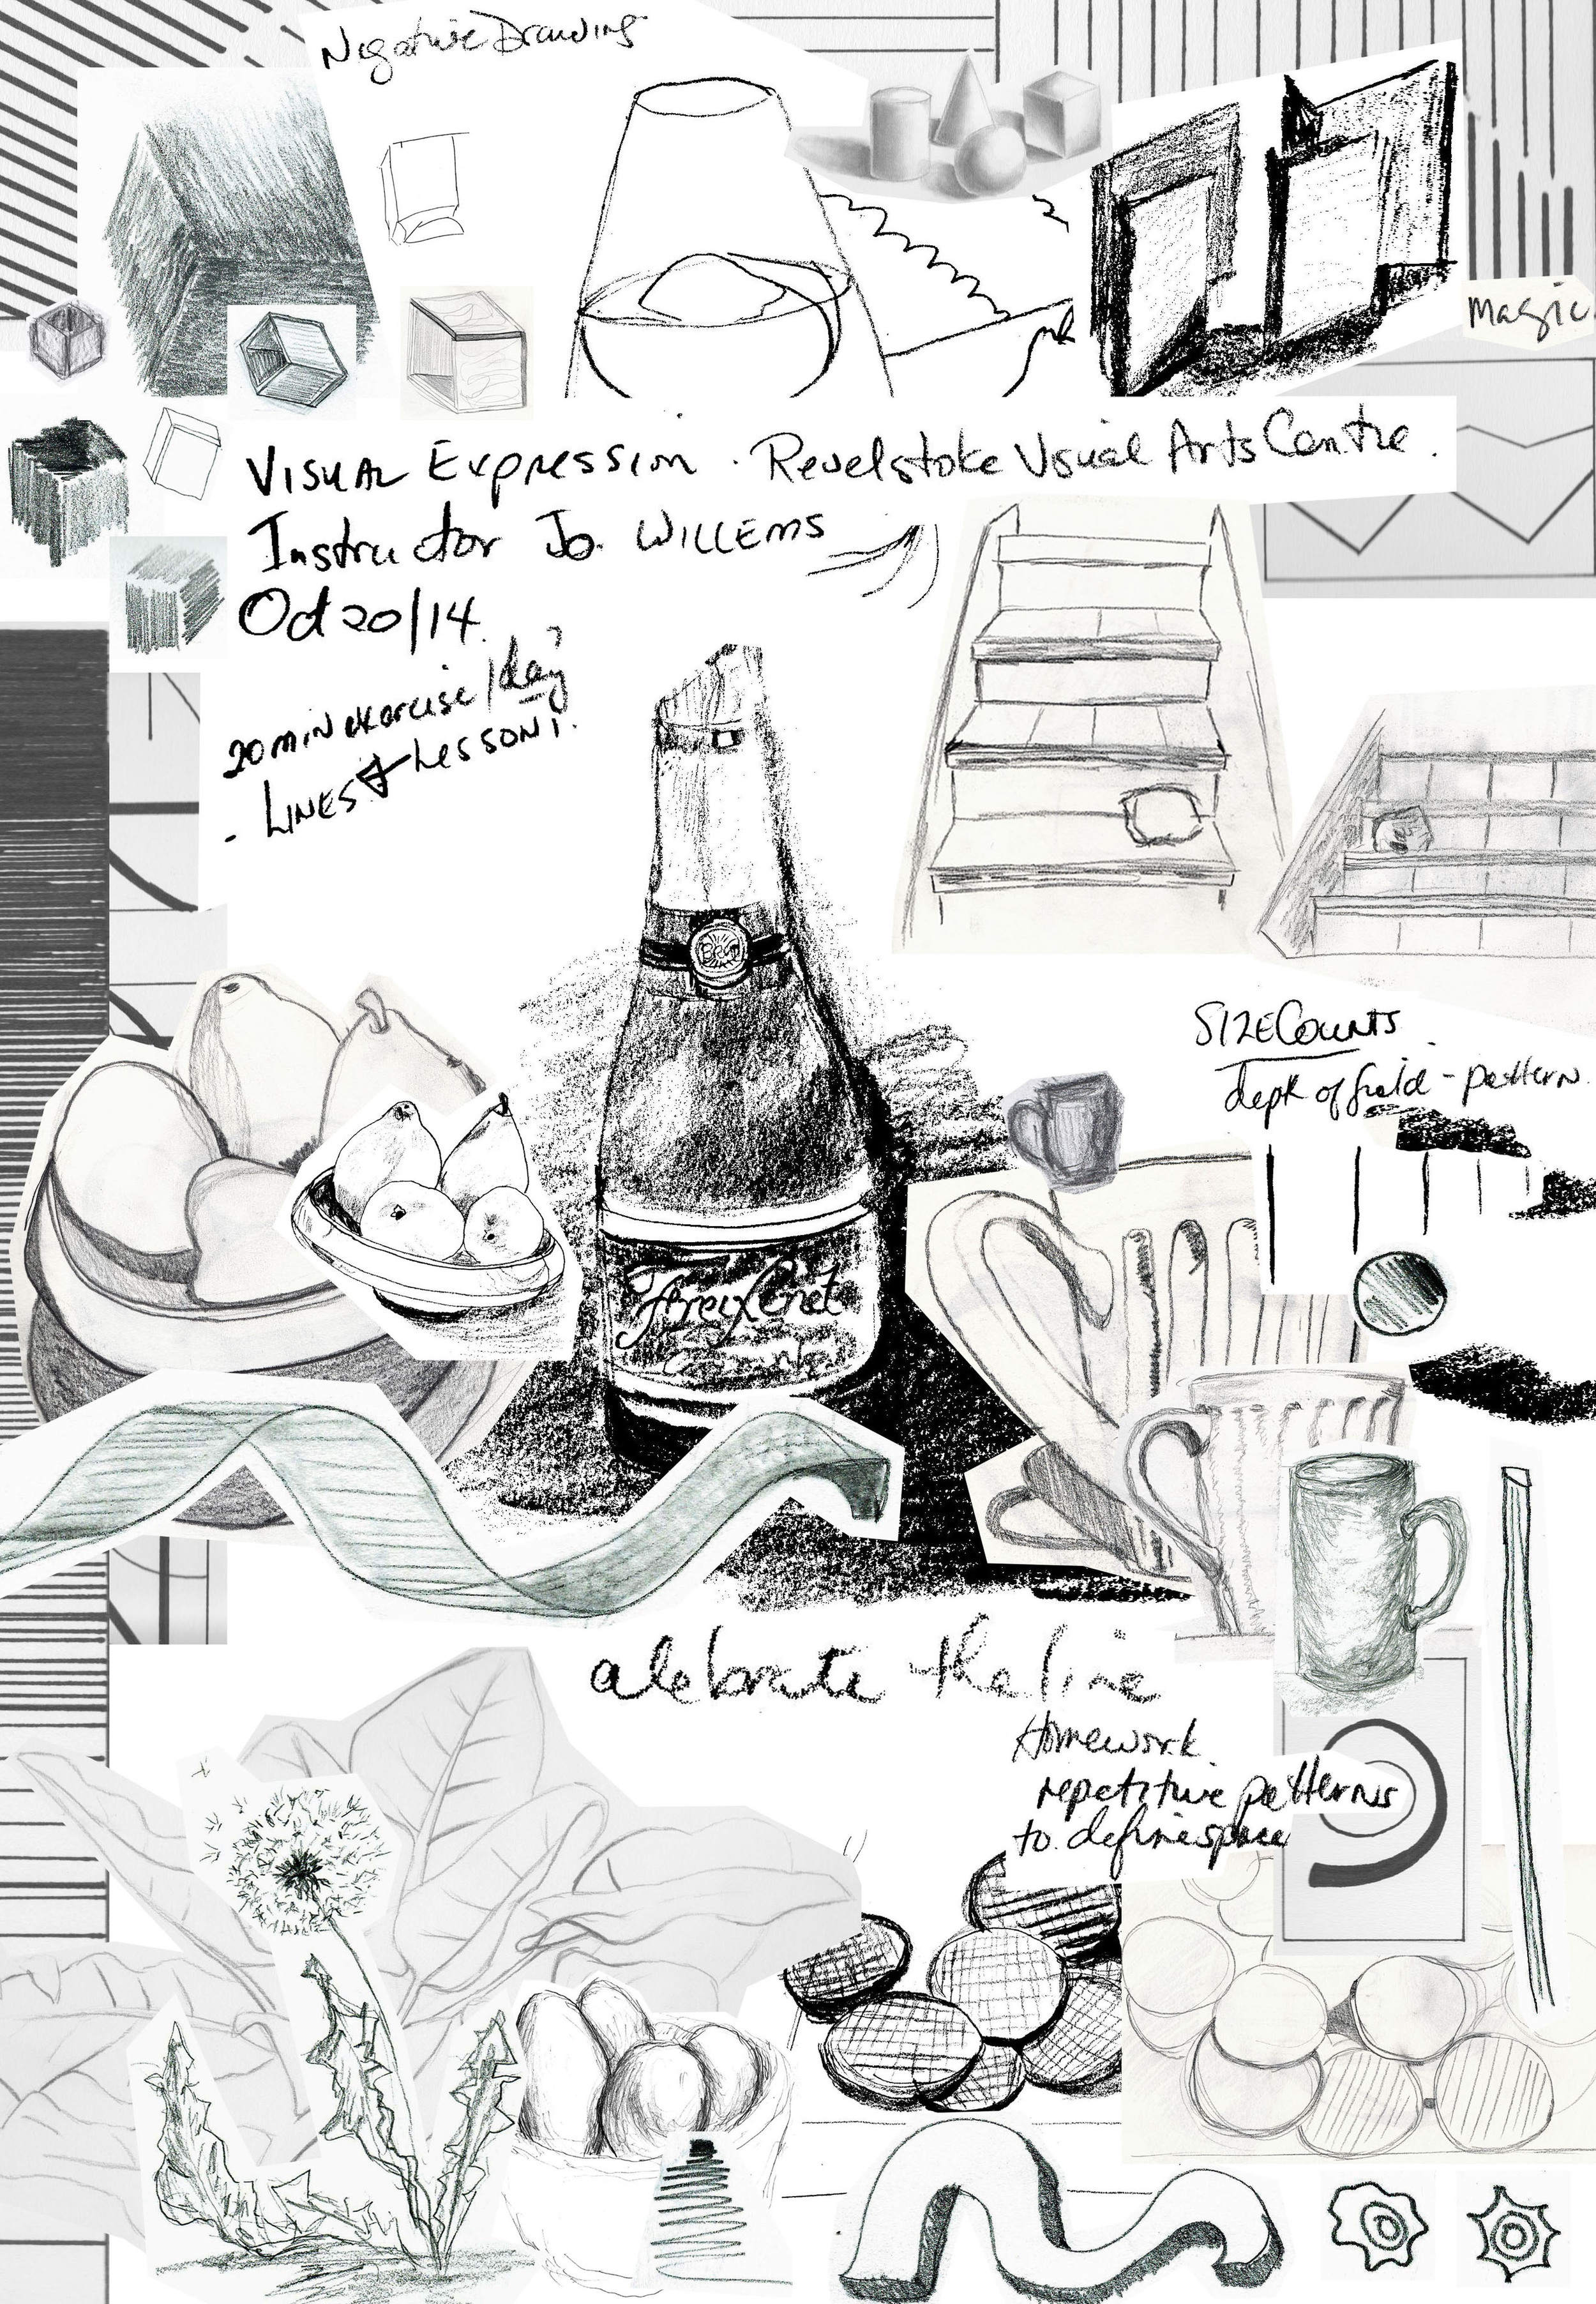 Negative Drawing
Magic
Visual Expression . Revelstoke Visual Arts Centre .
Instructor Jo. WILLEMS
Oct 20/14.
20 min exercise / day
- LINES & Lesson 1.
SIZE Counts
depth of field - pattern.
Brut
Freixenet
celebrate the line
Homework.
repetitive patterns
to define space